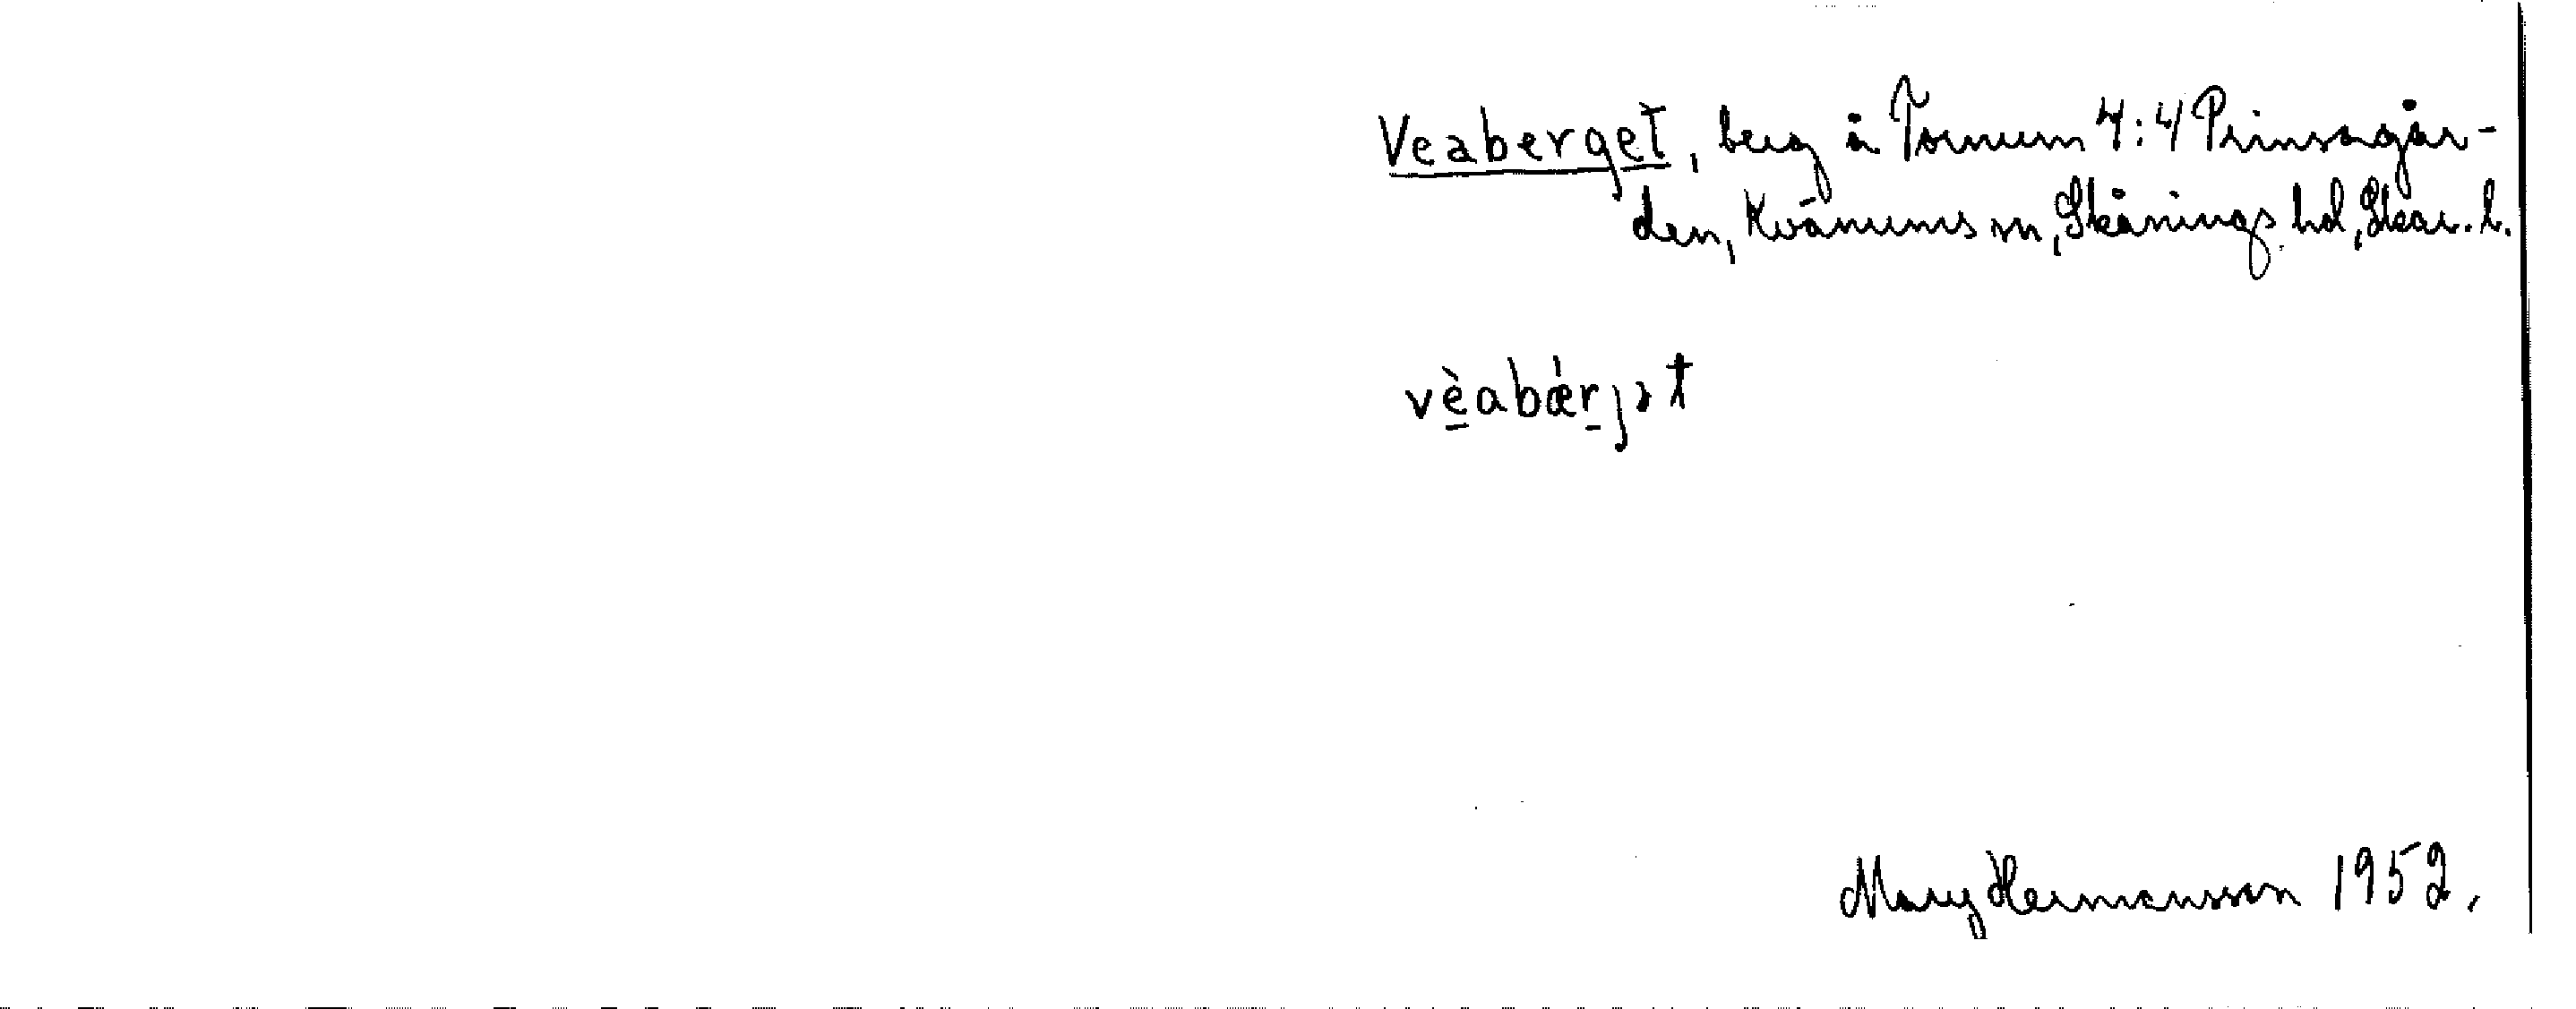 Veaberget, berg å Tornum 4:4 Prinsagår-
den, Kvänums sn, Skånings hd, Skar. l.
vèabǽrjət
Mary Hermansson 1952.